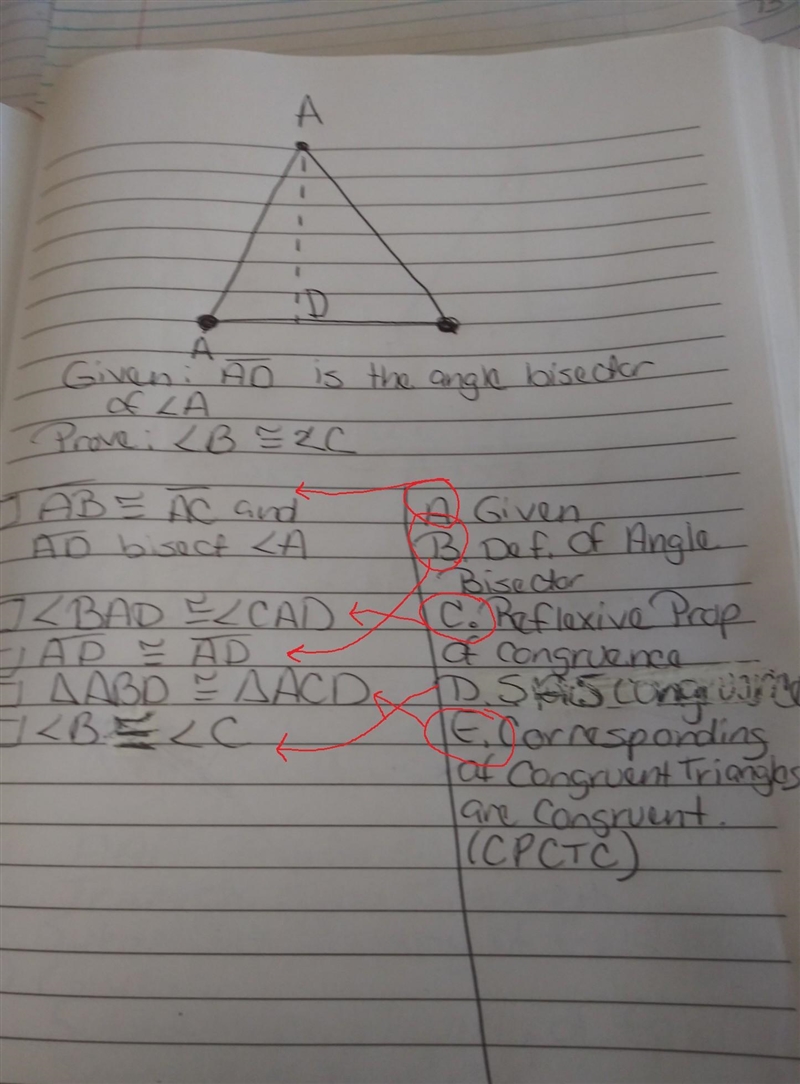 A
D
A
Given: AD is the angle bisector
of <A
Prove: <B ≅ <C
AB ≅ AC and
AD bisect <A
<BAD ≅ <CAD
AD ≅ AD
ΔABD ≅ ΔACD
<B ≅ <C
A Given
B. Def. Of Angle
Bisector
C. Reflexive Prop
of congruence
D.
E. Corresponding
of Congruent Triangles
are Congruent.
(CPCTC)